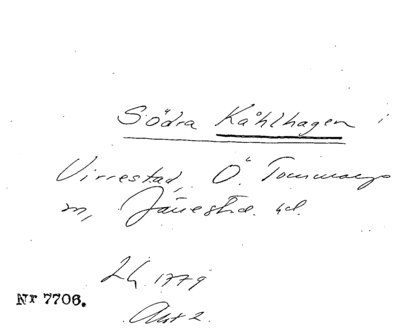 Södra Kåhlhagen i
Virrestad, Ö. Tommarps
m, Järrestad. äd.
Lh. 1779
Nr 7706.
Akt 2.